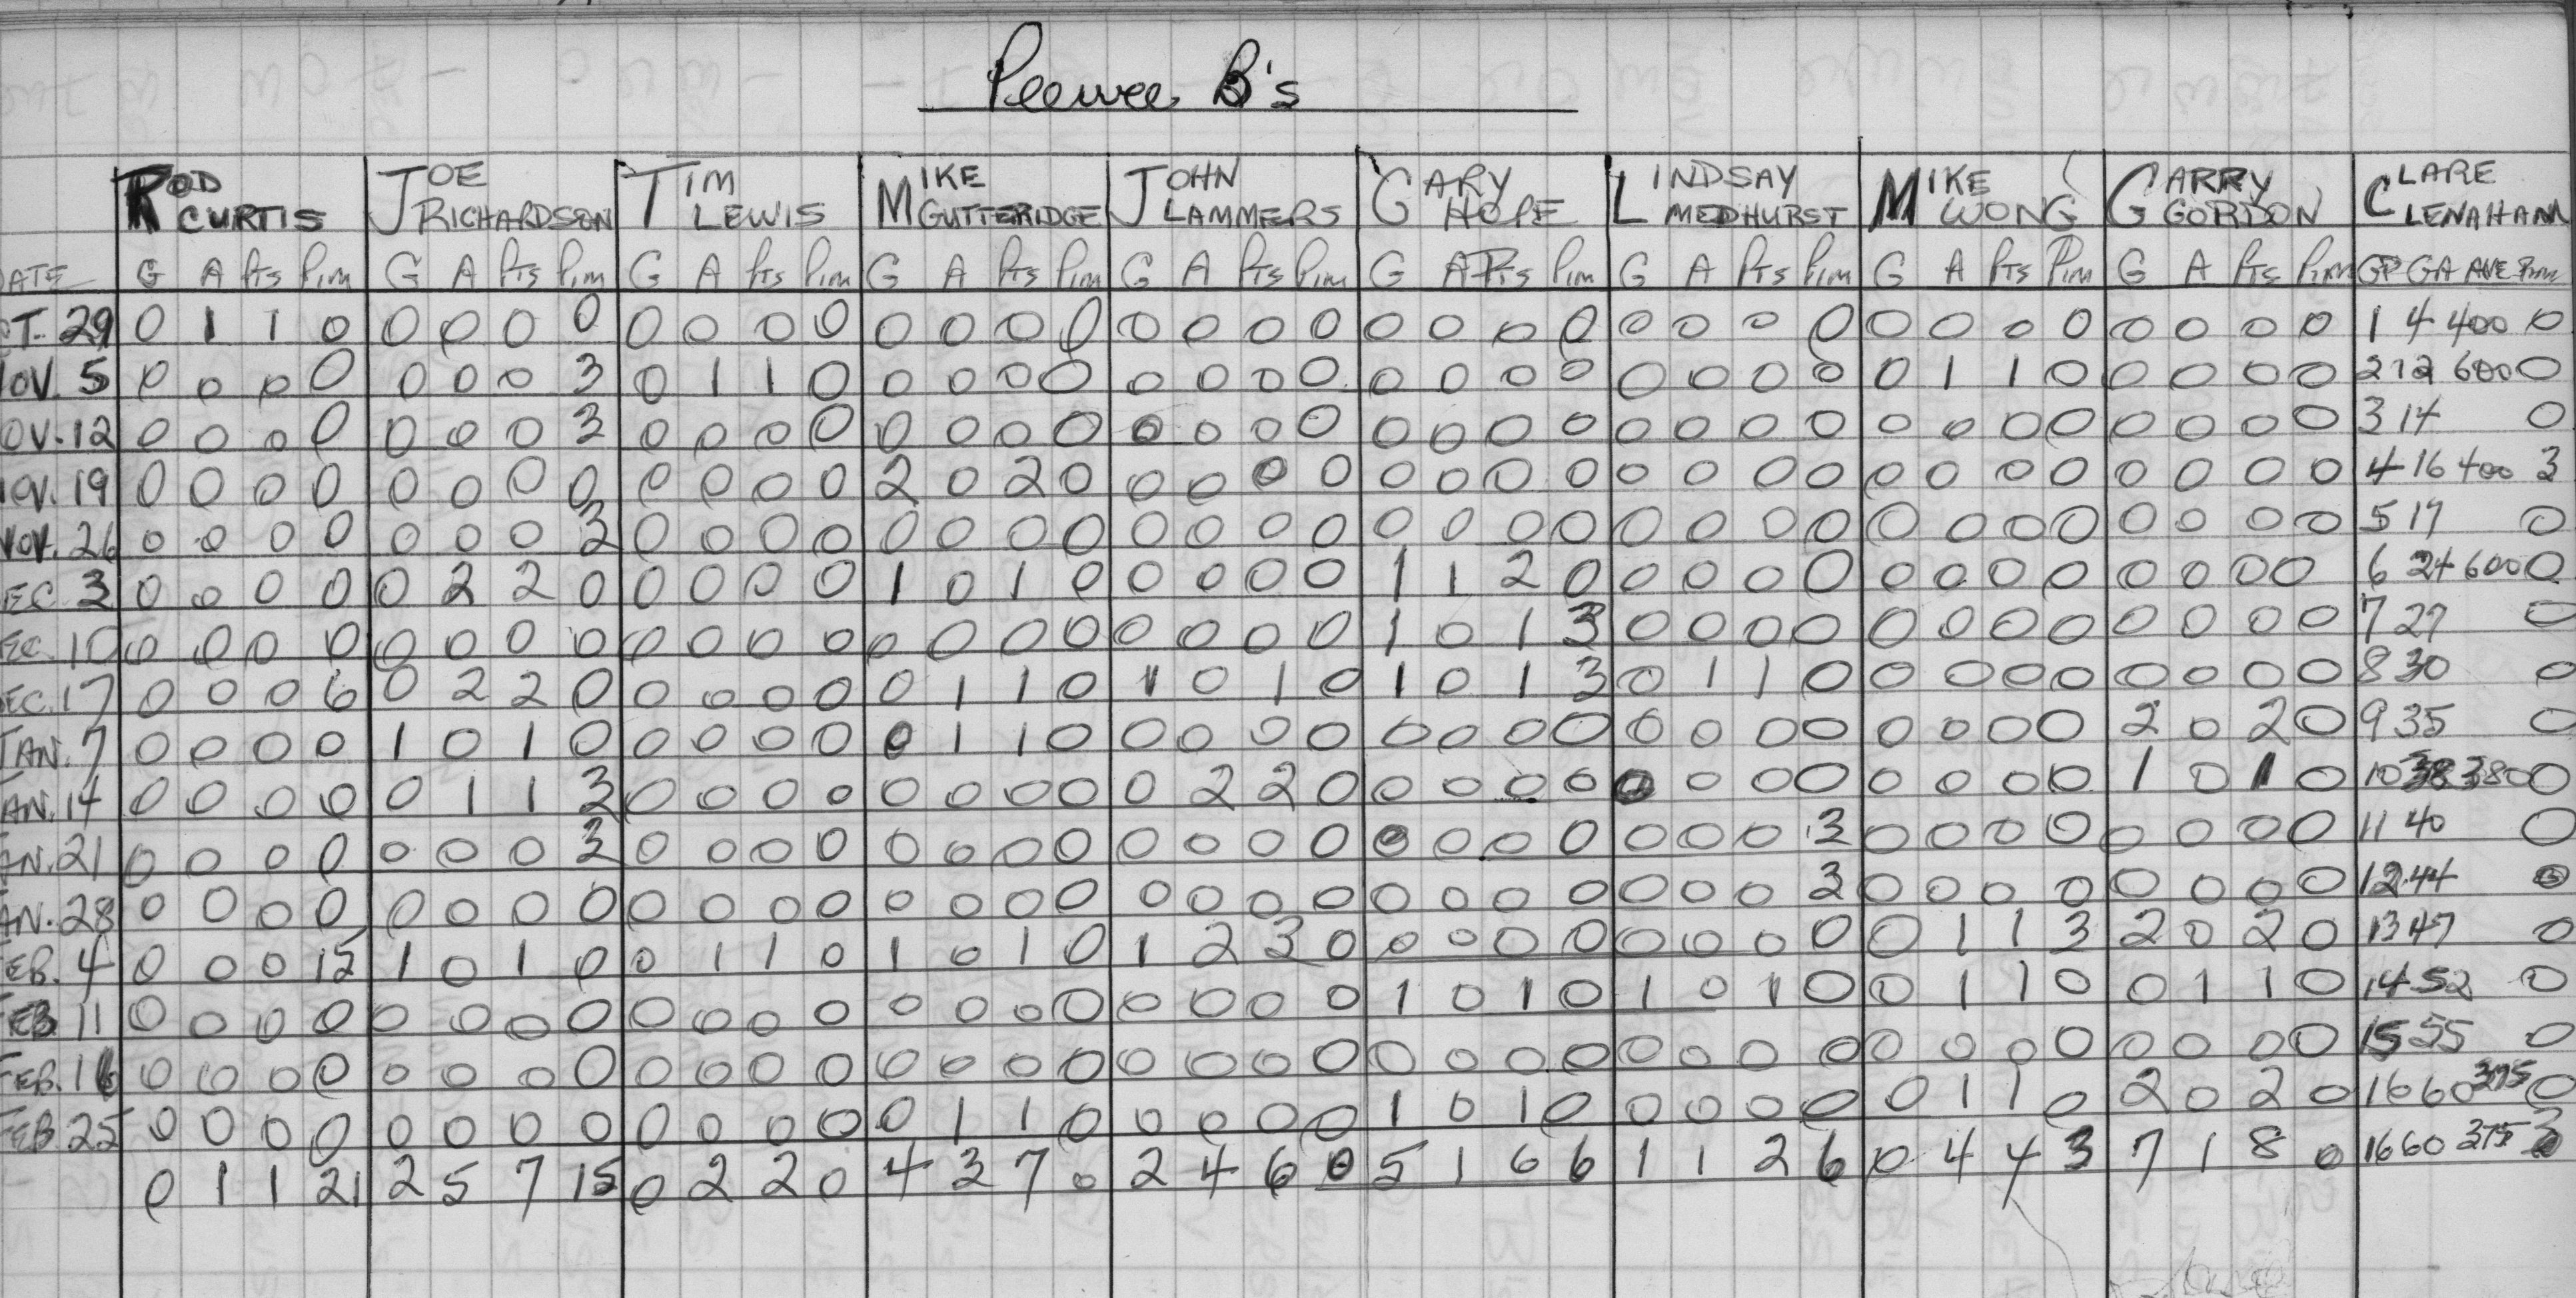 Peewee B's
ROD CURTIS JOE RICHARDSON TIM LEWIS MIKE GUTTERIDGE JOHN LAMMERS GARY HOPE LINDSAY MEDHURST MIKE WONG GARRY GORDON CLARE CLENAHAN
DATE G A Pts Pim G A Pts Pim G A Pts Pim G A Pts Pim G A Pts Pim G A Pts Pim G A Pts Pim G A Pts Pim G A Pts Pim GP GA AVE Pim
CT. 29 0 1 1 0 0 0 0 0 0 0 0 0 0 0 0 0 0 0 0 0 0 0 0 0 0 0 0 0 0 0 0 0 0 0 0 0 1 4 400 0
NOV. 5 0 0 0 0 0 0 0 3 0 1 1 0 0 0 0 0 0 0 0 0 0 0 0 0 0 0 0 0 0 1 1 0 0 0 0 0 2 12 600 0
OV. 12 0 0 0 0 0 0 0 3 0 0 0 0 0 0 0 0 0 0 0 0 0 0 0 0 0 0 0 0 0 0 0 0 0 0 0 0 3 14 0
NOV. 19 0 0 0 0 0 0 0 0 0 0 0 0 2 0 2 0 0 0 0 0 0 0 0 0 0 0 0 0 0 0 0 0 0 0 0 0 4 16 400 3
NOV. 26 0 0 0 0 0 0 0 3 0 0 0 0 0 0 0 0 0 0 0 0 0 0 0 0 0 0 0 0 0 0 0 0 0 0 0 0 5 17 0
EC. 3 0 0 0 0 0 2 2 0 0 0 0 0 1 0 1 0 0 0 0 0 1 1 2 0 0 0 0 0 0 0 0 0 0 0 0 0 6 24 600 0
EC. 10 0 0 0 0 0 0 0 0 0 0 0 0 0 0 0 0 0 0 0 0 1 0 1 3 0 0 0 0 0 0 0 0 0 0 0 0 7 27 0
EC. 17 0 0 0 6 0 2 2 0 0 0 0 0 0 1 1 0 1 0 1 0 1 0 1 3 0 1 1 0 0 0 0 0 0 0 0 0 8 30 0
JAN. 7 0 0 0 0 1 0 1 0 0 0 0 0 0 1 1 0 0 0 0 0 0 0 0 0 0 0 0 0 0 0 0 0 2 0 2 0 9 35 0
JAN. 14 0 0 0 0 0 1 1 3 0 0 0 0 0 0 0 0 0 2 2 0 0 0 0 0 0 0 0 0 0 0 0 0 1 0 1 0 10 38 380 0
AN. 21 0 0 0 0 0 0 0 3 0 0 0 0 0 0 0 0 0 0 0 0 0 0 0 0 0 0 0 3 0 0 0 0 0 0 0 0 11 40 0
AN. 28 0 0 0 0 0 0 0 0 0 0 0 0 0 0 0 0 0 0 0 0 0 0 0 0 0 0 0 3 0 0 0 0 0 0 0 0 12 44 0
EB. 4 0 0 0 15 1 0 1 0 0 1 1 0 1 0 1 0 1 2 3 0 0 0 0 0 0 0 0 0 0 1 1 3 2 0 2 0 13 47 0
FEB 11 0 0 0 0 0 0 0 0 0 0 0 0 0 0 0 0 0 0 0 0 1 0 1 0 1 0 1 0 0 1 1 0 0 1 1 0 14 52 0
FEB. 16 0 0 0 0 0 0 0 0 0 0 0 0 0 0 0 0 0 0 0 0 0 0 0 0 0 0 0 0 0 0 0 0 0 0 0 0 15 55 0
FEB 25 0 0 0 0 0 0 0 0 0 0 0 0 0 1 1 0 0 0 0 0 1 0 1 0 0 0 0 0 0 1 1 0 2 0 2 0 16 60 375 0
0 1 1 21 2 5 7 15 0 2 2 0 4 3 7 0 2 4 6 0 5 1 6 6 1 1 2 6 0 4 4 3 7 1 8 0 16 60 375 3